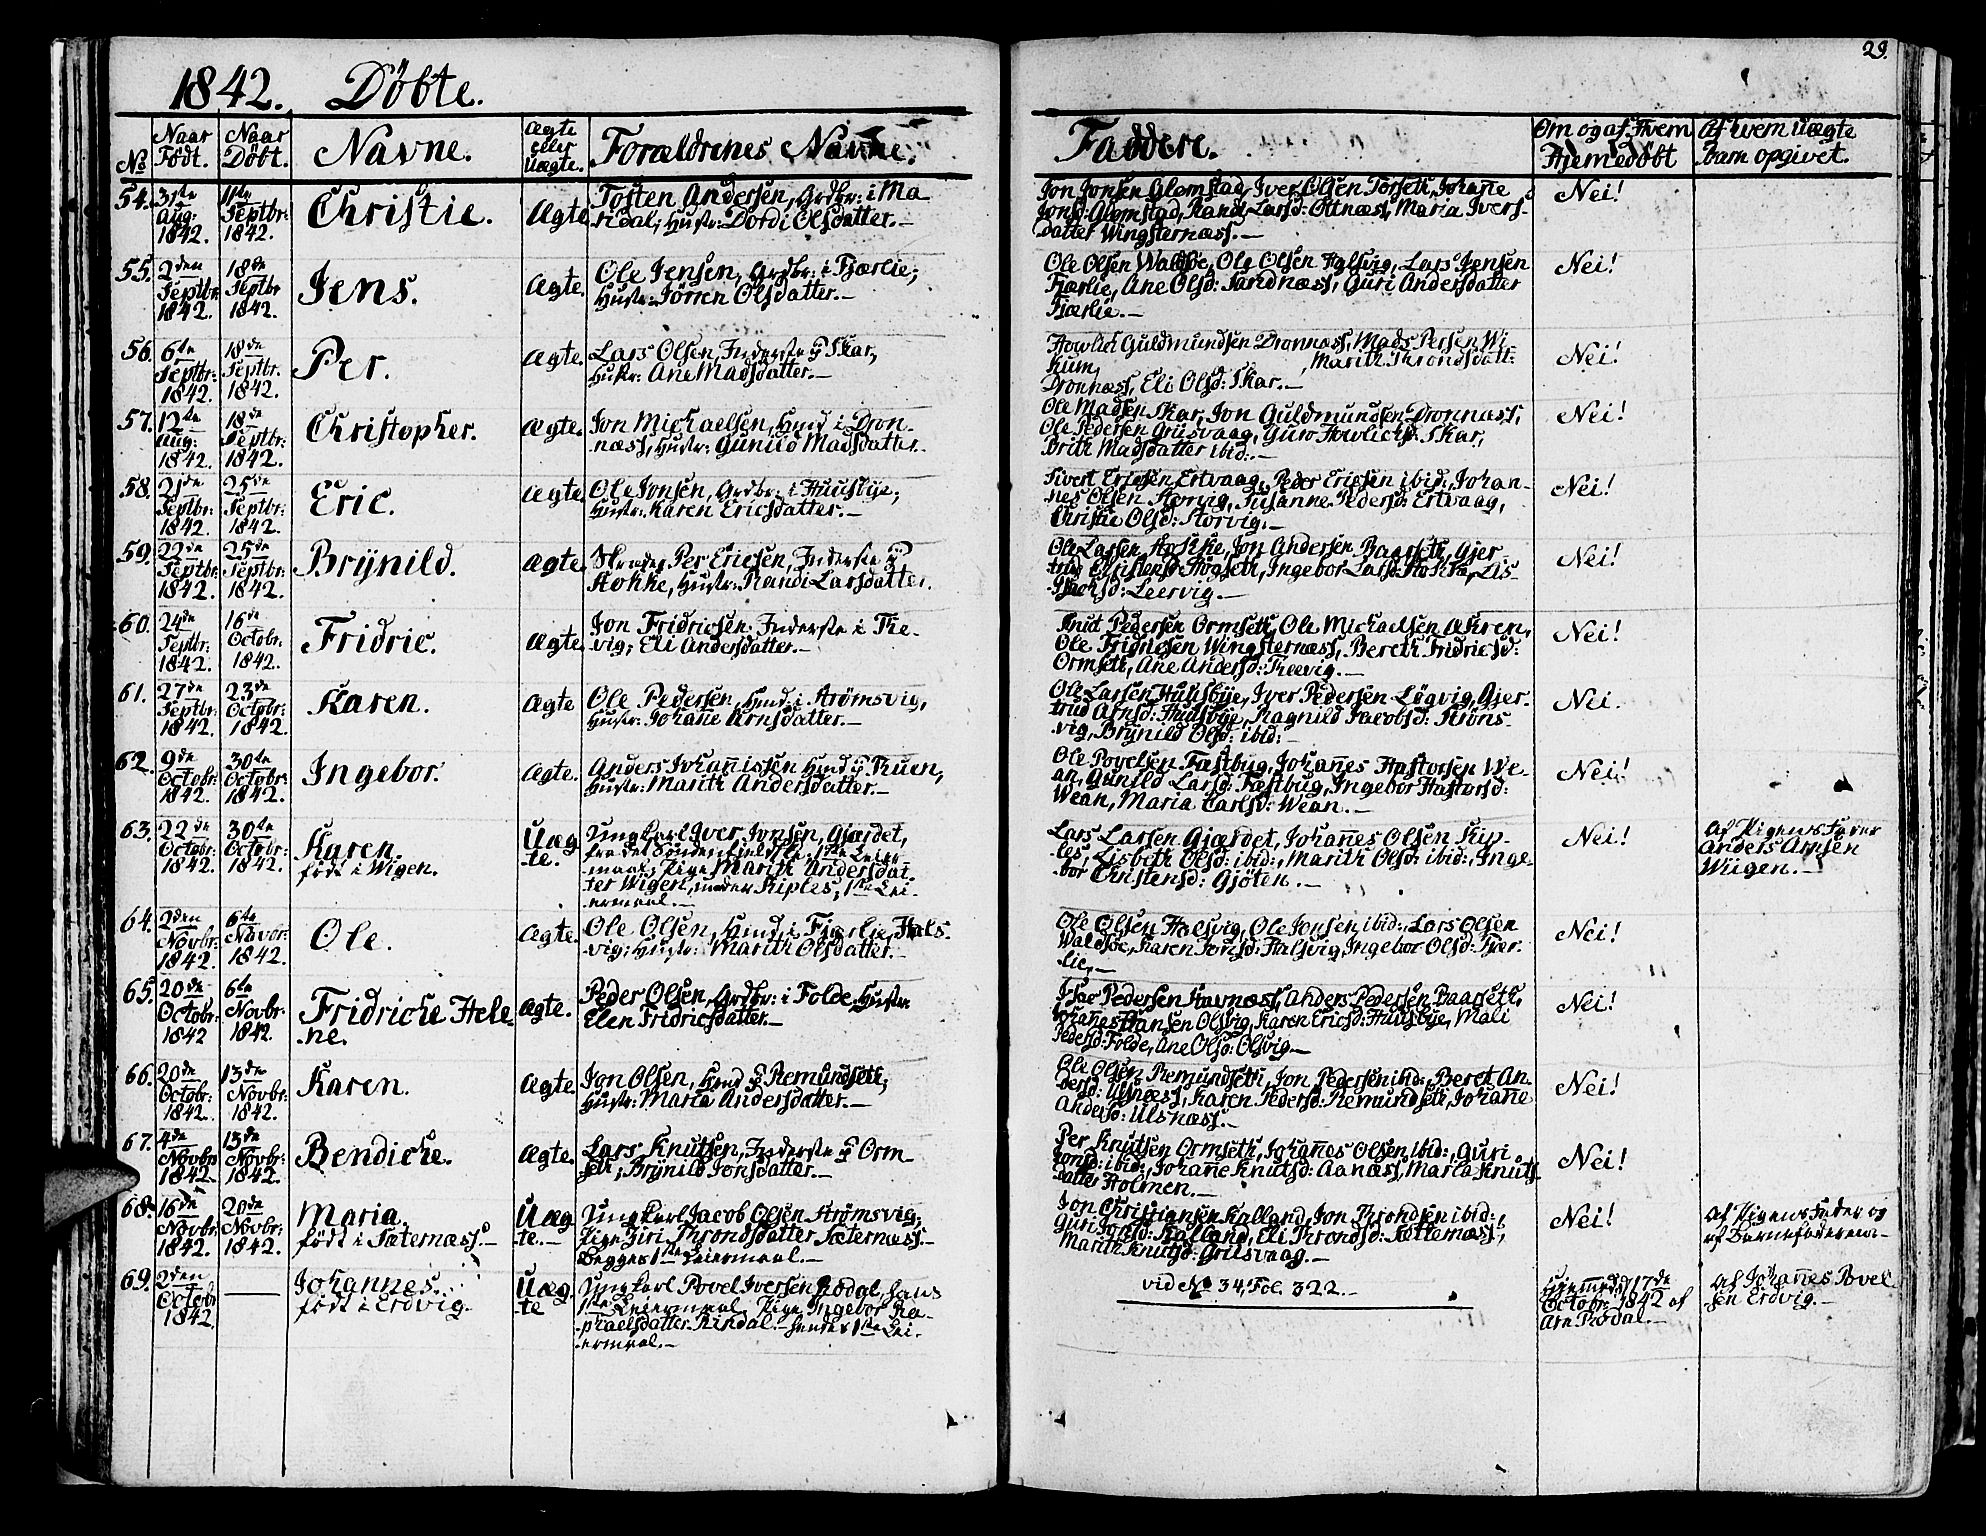 29.
1842. Döbte.
No
Naar Födt.
Naar Döbt.
Navne.
Ægte eller Uægte.
Forældrenes Navne.
Faddere.
Om og af Hvem Hjemedöbt
Af hvem uægte Barn opgivet.
54. 31te Aug: 1842. 11te Septbr: 1842. Christie. Ægte
Tosten Andersen, Grdbr: i Ma-
ridal, Hustr: Dordi Olsdatter.—
Jon Jonsen Glomstad, Iver Olsen Torseth, Johane
Jonsd: Glomstad, Randi Larsd: Ottnæss, Maria Ivers-
datter Wingsternæss.—
Nei!
55. 2den Septbr: 1842. 18de Septbr 1842. Jens. Ægte.
Ole Jensen, Grdbr: i Fjærlie,
Hustr: Jörren Olsdatter.—
Ole Olsen Waldsöe, Ole Olsen Halsvig, Lars Jensen
Fjærlie, Ane Olsd: Sandnæss, Guri Andersdatter
Fjærlie.—
Nei!
56. 6te Septbr: 1842. 18de Septbr. 1842. Per. Ægte.
Lars Olsen, Inderste p Skar,
Hustr: Ane Madsdatter.—
Howlich Guldmundsen Dronnæss, Mads Persen Wi-
kum, , Marith Throndsdatt:
Dronnæss, Eli Olsd: Skar.—
Nei!
57. 12te Aug: 1842. 18de Septbr: 1842. Christopher. Ægte.
Jon Michaelsen, Hmd i Dron-
næss, Hustr: Gunild Madsdatter.
Ole Madsen Skar, Jon Guldmundsen Dronnæss,
Ole Pedersen Griisvaag, Guro Howlichsd: Skar,
Brith Madsdatter ibid:.—
Nei!
58. 21de Septbr: 1842. 25de Septbr: 1842. Eric. Ægte.
Ole Jonsen, Grdbr: i Huusbye,
Hustr: Karen Ericsdatter.—
Sivert Ericsen Ertvaag, Peder Ericsen ibid:, Johan-
nes Olsen Storvig, Susanne Pedersd: Ertvaag,
Christie Olsd: Storvig.—
Nei!
59. 22de Septbr: 1842. 25de Septbr: 1842. Brÿnild. Ægte.
Per Ericsen, Inderste p
Hokke, Hustr: Randi Larsdatter.
Ole Larsen Hokke, Jon Andersen Baarseth, Gjer-
trud Christensd: Högseth, Ingebor Larsd: Hokke, Lis-
Leervig.—
Nei!
60. 24de Septbr: 1842. 16de Octobr: 1842. Fridric. Ægte.
Jon Fridricsen Inderste i The-
vig, Eli Andersdatter.—
Knut Pedersen Ormseth, Ole Michaelsen Akren,
Ole Fridricsen Wingsternæss, Bereth Fridricsd:
Ormseth, Ane Andersd: Theevig.—
Nei!
61. 27de Septbr: 1842. 23de Octobr: 1842. Karen. Ægte
Ole Pedersen, Hmd i Strömsvig,
Hustr: Johane Arnsdatter.—
Ole Larsen Huusbÿe, Iver Pedersen Lögvig, Gjer-
trud Arnsd: Huusbÿe, Ragnild Jacobsd: Ströms-
vig, Brÿnild Olsd: ibid:—
Nei.
62. 9de Octobr: 1842. 30te Octobr: 1842. Ingebor. Ægte.
Anders Johannissen Hmd p Ruen,
Hustr: Marith Andersdatter.—
Ole Povelsen Fæstbug, Johannes Hastorsen We-
an, Gunild Larsd: Fæstbug, Ingebor Hastorsd:
Wean, Maria Carlsd: Wean.—
Nei!
63. 22de Octobr: 1842. 30te Octobr: 1842. Karen, födt i Wigen. Uæg-
te.
Ungkarl Iver Jonsen, Gjærdet,
fra det Söndenfjeldske, 1ste Leier-
maal, Pige Marith Andersdat-
ter Wigen, under Kiples, 1ste Lei-
ermaal.—
Lars Larsen Gjærdet, Johannes Olsen Kip-
les, Lisbeth Olsd: ibid:, Marith Olsd: ibid:, Inge-
bor Christensd: Gjöten.—
Nei!
Af Pigens Fader
Anders Arnsen
Wiigen.—
64. 2den Novbr: 1842. 6te Novbr: 1842. Ole. Ægte.
Ole Olsen, Hmd i Fjærlie, Hals-
vig, Hustr: Marith Olsdatter.—
Ole Olsen Halsvig, Ole Jonsen ibid:, Lars Olsen
Waldsöe, Karen Jonsd: Halsvig, Ingebor Olsd: Fjær-
lie,—
Nei!
65. 20de Octobr: 1842 6te Novbr. 1842. Fridriche Hele-
ne. Ægte.
Peder Olsen, Grdbr: i Folde, Hustr
Elen Fridricsdatter.—
Isac Pedersen Stavnæss, Anders Pedersen Baarseth,
Johanes Hansen Olsvig, Karen Ericsd: Huusbÿe, Mali
Pedersd: Folde, Ane Olsd: Olsvig.—
Nei!
66. 20de Octobr: 1842. 13de Novbr: 1842. Karen. Ægte
Jon Olsen, Hmd p Remundseth,
Hustr: Maria Andersdatter.—
Ole Olsen Remundseth, Jon Pedersen ibid:, Beret An-
dersd: Ulsnæss, Karen Pedersd: Remundseth, Johane
Andersd: Ulsnæss.—
Nei!
67. 4de Novbr 1842. 13de Novbr: 1842. Bendiche. Ægte.
Lars Knutsen, Inderste p Orm-
seth, Brÿnild Jonsdatter.—
Per Knutsen Ormseth, Johannes Olsen ibid:, Guri
Jonsd: ibid:, Johane Knutsd: Aanæss, Maria Knuts-
datter Holmen.—
Nei!
68. 16de Novbr: 1842. 20de Novbr: 1842. Maria, födt i Sæternæss. Uæg
te.—
Ungkarl Jacob Olsen Strömsvig,
Pige Siri Throndsdatter Sæternæss.—
Begges 1ste Leiermaal.—
Jon Christiansen Kalland, Jon Throndsen ibid:,
Guri Jonsd: Kalland, Eli Throndsd: Sætternæss,
Marith Knutsd: Griisvaag.—
Nei!
Af Pigens Fader og
af Barnefaderen.—
69. 2den Octobr 1842. — Johannes. födt i Erdvig. Uæg
te
Ungkarl Povel Iversen Rodal, hans
1ste Leiermaal, Pige Ingebor Ra-
phaelsdatter Rindal.— hendes 1ste Lei-
ermaal.—
vid No 34, Fol. 322.—
Hjemmed: 17de
Octobr: 1842 af
Arn Rodal.—
Af Johannes Povel-
sen Erdvig.—